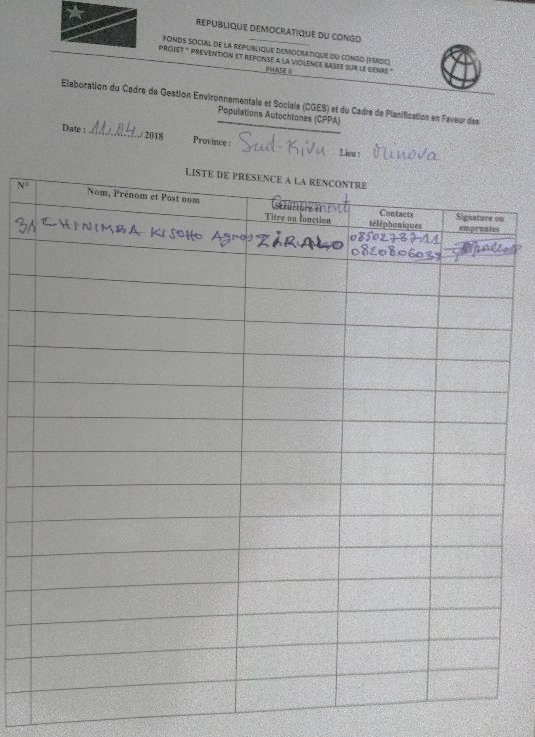 REPUBLIQUE DEMOCRATIQUE DU CONGO
FONDS SOCIAL DE LA REPUBLIQUE DEMOCRATIQUE DU CONGO (FSRDC)
PROJET " PREVENTION ET REPONSE A LA VIOLENCE BASEE SUR LE GENRE "
PHASE II
Elaboration du Cadre de Gestion Environnementale et Sociale (CGES) et du Cadre de Planification en Faveur des
Populations Autochtones (CPPA)
Date : 11/04/2018 Province : Sud-Kivu Lieu : Minova
LISTE DE PRESENCE A LA RENCONTRE
N° Nom, Prénom et Post nom Titre ou fonction Contacts téléphoniques Signature ou empruntes
31 CHINIMBA KISOHO Agnes ZIRALO